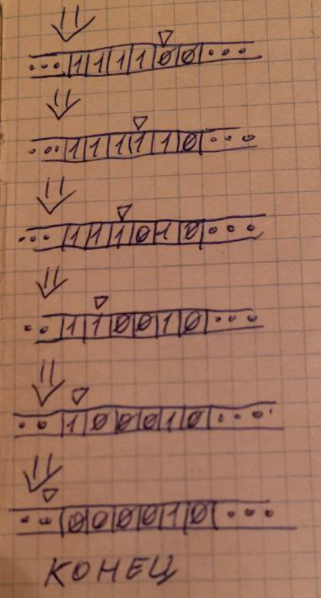 ···|1|1|1|1|0|0|···
···|1|1|1|1|1|0|···
···|1|1|1|0|1|0|···
··|1|1|0|0|1|0|···
··|1|0|0|0|1|0|···
··|0|0|0|0|1|0|···
КОНЕЦ